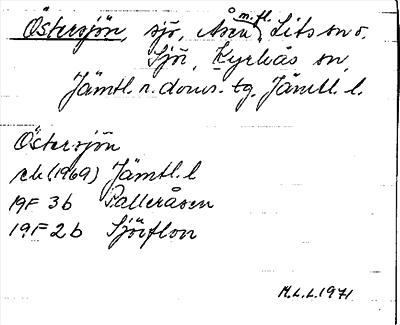 Östersjön, sjö, Åsen m.fl. Lits sn o.
Sjör, Kyrkås sn,
Jämtl. n. doms. tg. Jämtl. l.
Östersjön
rek (1969) Jämtl. l
19F 3b Palleråsen
19F 2b Sjörflon
M.L.L. 1971